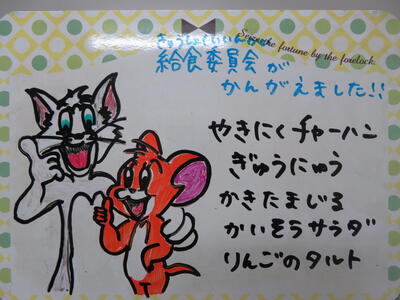 Seize the fortune by the forelock.
きゅうしょくいいんかい
給食委員会が
かんがえました!!
やきにくチャーハン
ぎゅうにゅう
かきたまじる
かいそうサラダ
りんごのタルト